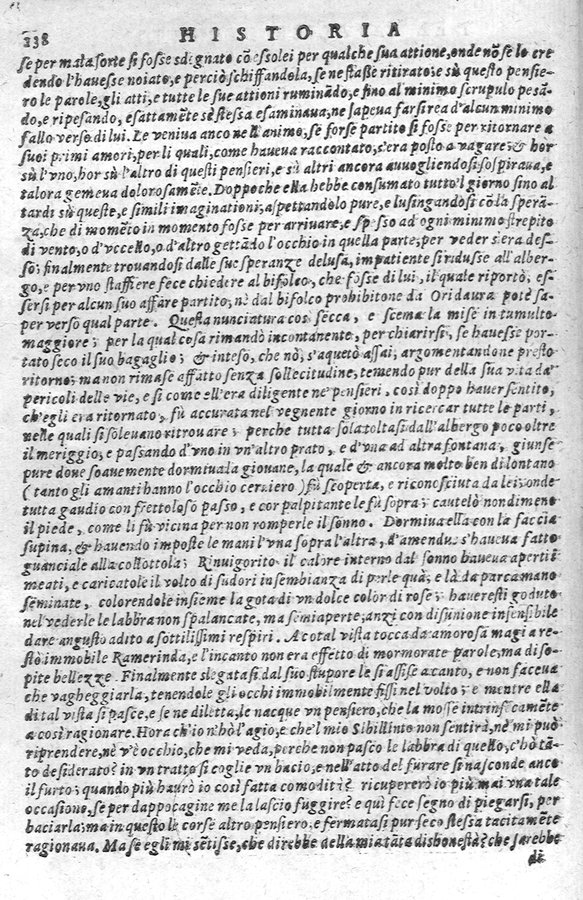 238 HISTORIA
se per mala sorte si fosse sdegnato cõ essolei per qualche sua attione, onde nõ se lo cre
dendo l'hauesse noiato, e perciò schiffandola, se ne stasse ritirato; e sù questo pensie-
ro le parole, gli atti, e tutte le sue attioni ruminãdo, e fino al minimo scrupulo pesã-
do, e ripesando, esattamẽte sè stessa esaminaua, ne sapeua farsi rea d'alcun minimo
fallo verso di lui. Le veniua anco nell'animo, se forse partito si fosse per ritornare a
suoi primi amori, per li quali, come haueua raccontato, s'era posto a vagare; & hor
sù l'vno, hor sù l'altro di questi pensieri, e sù altri ancora auuogliendosi sospiraua, e
talora gemeua dolorosamẽte. Doppoche ella hebbe consumato tutto'l giorno sino al
tardi sù queste, e simili imaginationi, aspettandolo pure, e lusingandosi cõ la sperã-
za, che di momẽto in momento fosse per arriuare, e spesso ad ogni minimo strepito
di vento, o d'vccello, o d'altro gettãdo l'occhio in quella parte, per veder s'era des-
so; finalmente trouandosi dalle sue speranze delusa, impatiente si ridusse all'alber-
go, e per vno staffiere fece chiedere al bifolco, che fosse di lui, il quale riportò, es-
sersi per alcun suo affare partito, nè dal bifolco prohibitone da Oridaura potè sa-
per verso qual parte. Questa nunciatura così secca, e scema la mise in tumulto
maggiore; per la qual cosa rimandò incontanente, per chiarirsi, se hauesse por-
tato seco il suo bagaglio; & inteso, che nò, s'aquetò assai, argomentandone presto
ritorno; ma non rimase affatto senza sollecitudine, temendo pur della sua vita da'
pericoli delle vie, e si come ell'era diligente ne' pensieri, così doppo hauer sentito,
ch'egli era ritornato, fù accurata nel vegnente giorno in ricercar tutte le parti,
nelle quali si soleuano ritrouare; perche tutta sola toltasi dall'albergo poco oltre
il meriggio, e passando d'vno in vn'altro prato, e d'vna ad altra fontana, giunse
pure doue soauemente dormiua la giouane, la quale & ancora molto ben di lontano
(tanto gli amanti hanno l'occhio ceruiero) fù scoperta, e riconosciuta da lei; onde
tutta gaudio con frettoloso passo, e cor palpitante le fù sopra; cautelò nondimeno
il piede, come li fù vicina per non romperle il sonno. Dormiua ella con la faccia
supina, & hauendo imposte le mani l'vna sopra l'altra, d'amendue s'haueua fatto
guanciale alla collottola; Rinuigorito il calore interno dal sonno haueua aperti i
meati, e caricatole il volto di sudori in sembianza di perle quà, e là da parca mano
seminate, colorendole insieme la gota di vn dolce color di rose; haueresti goduto
nel vederle le labbra non spalancate, ma semiaperte; anzi con disunione insensibile
dare angusto adito a sottilissimi respiri. A cotal vista tocca da amorosa magia re-
stò immobile Ramerinda, e l'incanto non era effetto di mormorate parole, ma di so-
pite bellezze. Finalmente slegatasi dal suo stupore le si assise a canto, e non faceua
che vagheggiarla, tenendole gli occhi immobilmente fissi nel volto; e mentre ella
di tal vista si pasce, e se ne diletta, le nacque vn pensiero, che la mosse intrinsecamẽte
a così ragionare. Hora ch'io n'hò l'agio, e che'l mio Sibillinto non sentirà, nè mi può
riprendere, nè v'è occhio, che mi veda, perche non pasco le labbra di quello, c'hò tã-
to desiderato? in vn tratto si coglie vn bacio, e nell'atto del furare si nasconde anco
il furto; quando più haurò io così fatta comodità? ricupererò io più mai vna tale
occasione, se per dappocagine me la lascio fuggire? e quì fece segno di piegarsi, per
baciarla; ma in questo le corse altro pensiero, e fermatasi pur seco stessa tacitamẽte
ragionaua. Ma se egli mi sẽtisse, che direbbe della mia tãta dishonestà? che sarebbe
di